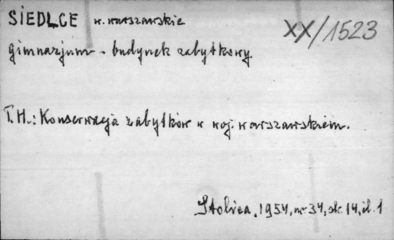 SIEDLCE w. warszawskie
XX/1523
gimnazjum - budynek zabytkowy.
T.H.: Konserwacja zabytków w woj. warszawskiem.
Stolica, 1954, nr 34, str. 14, il. 1